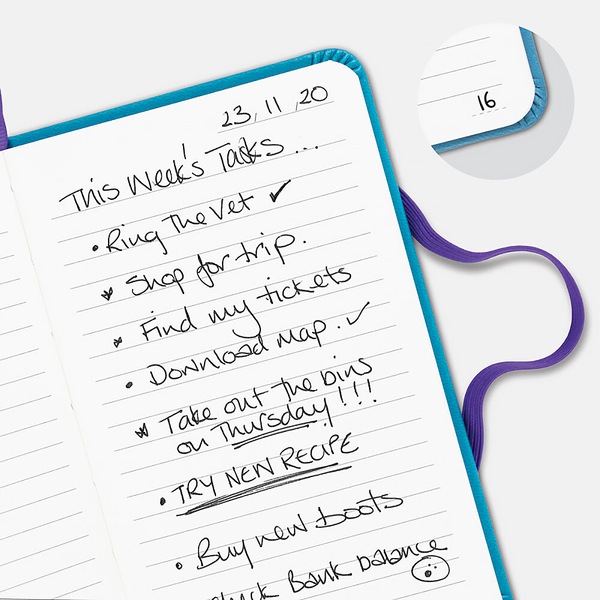 23, 11, 20
This Week's Tasks...
• Ring The Vet ✓
* Shop for trip.
* Find my tickets
• Download Map. ✓
* Take out the bins
on Thursday!!!
• TRY NEW RECIPE
• Buy new boots
Check Bank balance
16